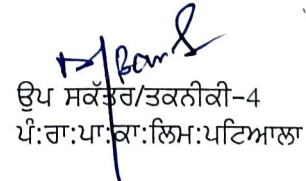 ਉਪ ਸਕੱਤਰ/ਤਕਨੀਕੀ-4
ਪੰ:ਰਾ:ਪਾ:ਕਾ:ਲਿਮ:ਪਟਿਆਲਾ